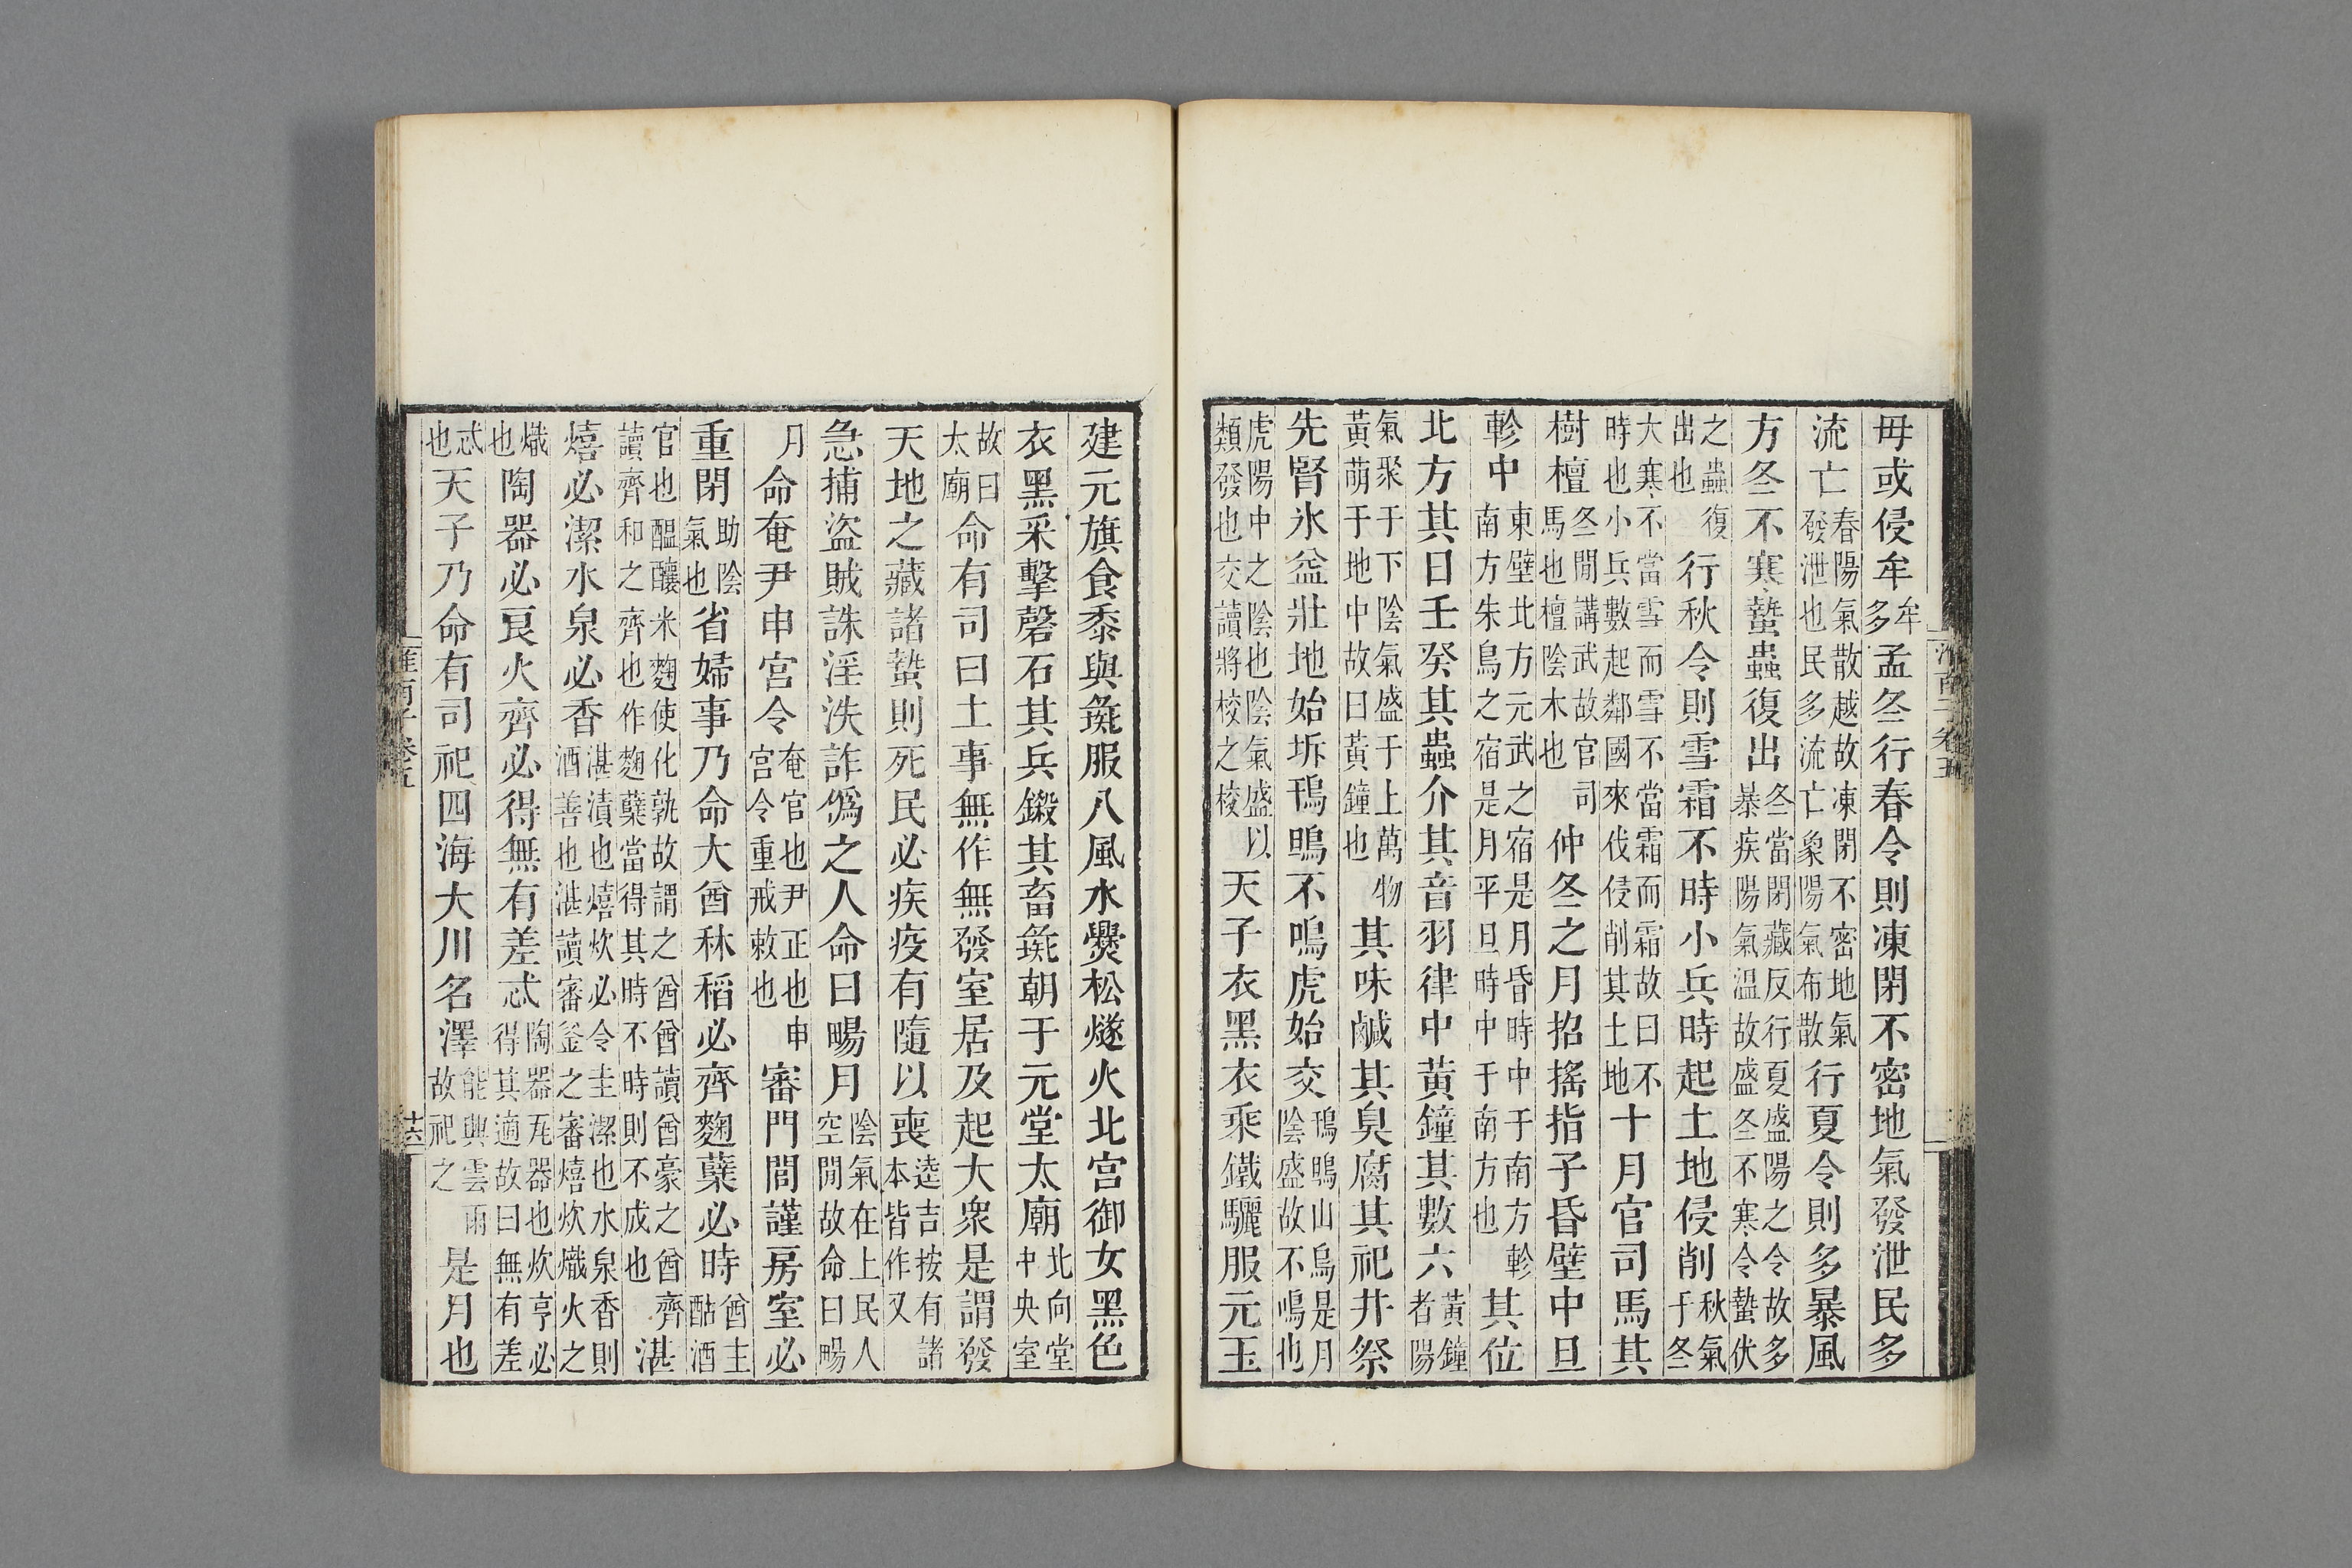 毋或侵牟牟多孟冬行春令則凍閉不密地氣發泄民多
流亡春陽氣散越故凍閉不密地氣發泄也民多流亡象陽氣布散行夏令則多暴風
方冬不寒蟄蟲復出冬當閉藏反行夏盛陽之令故多暴疾陽氣溫故盛冬不寒令蟄伏
之蟲復出也行秋令則雪霜不時小兵時起土地侵削秋氣干冬
大寒不當雪而雪不當霜而霜故曰不時也小兵數起鄰國來伐侵削其土地十月官司馬其
樹檀冬閒講武故官司馬也檀陰木也仲冬之月招搖指子昏壁中旦
軫中東壁北方元武之宿是月昏時中于南方軫南方朱鳥之宿是月平旦時中于南方也其位
北方其日壬癸其蟲介其音羽律中黃鐘其數六黃鐘者陽
氣聚于下陰氣盛于上萬物黃萌于地中故曰黃鐘也其味鹹其臭腐其祀井祭
先腎冰益壯地始坼鳱鴠不鳴虎始交鳱鴠山鳥是月陰盛故不鳴也
虎陽中之陰也陰氣盛以類發也交讀將校之校天子衣黑衣乘鐵驪服元玉
建元旗食黍與彘服八風水爨松燧火北宮御女黑色
衣黑采擊磬石其兵鍛其畜彘朝于元堂太廟北向堂中央室
故曰太廟命有司曰土事無作無發室居及起大衆是謂發
天地之藏諸蟄則死民必疾疫有隨以喪逵吉按有諸本皆作又
急捕盜賊誅淫泆詐僞之人命曰暢月陰氣在上民人空閒故命曰暢
月命奄尹申宮令奄官也尹正也申宮令重戒敕也審門閭謹房室必
重閉助陰氣也省婦事乃命大酋秫稻必齊麴蘖必時酋主酤酒
官也醞釀米麴使化孰故謂之酋酋讀酋豪之酋齊讀齊和之齊也作麴蘖當得其時不時則不成也湛
熺必潔水泉必香湛漬也熺炊必令圭潔也水泉香則酒善也湛讀審釜之審熺炊熾火之
熾也陶器必良火齊必得無有差忒陶器瓦器也炊亨必得其適故曰無有差
忒也天子乃命有司祀四海大川名澤能興雲雨故祀之是月也
淮南子卷五
十六